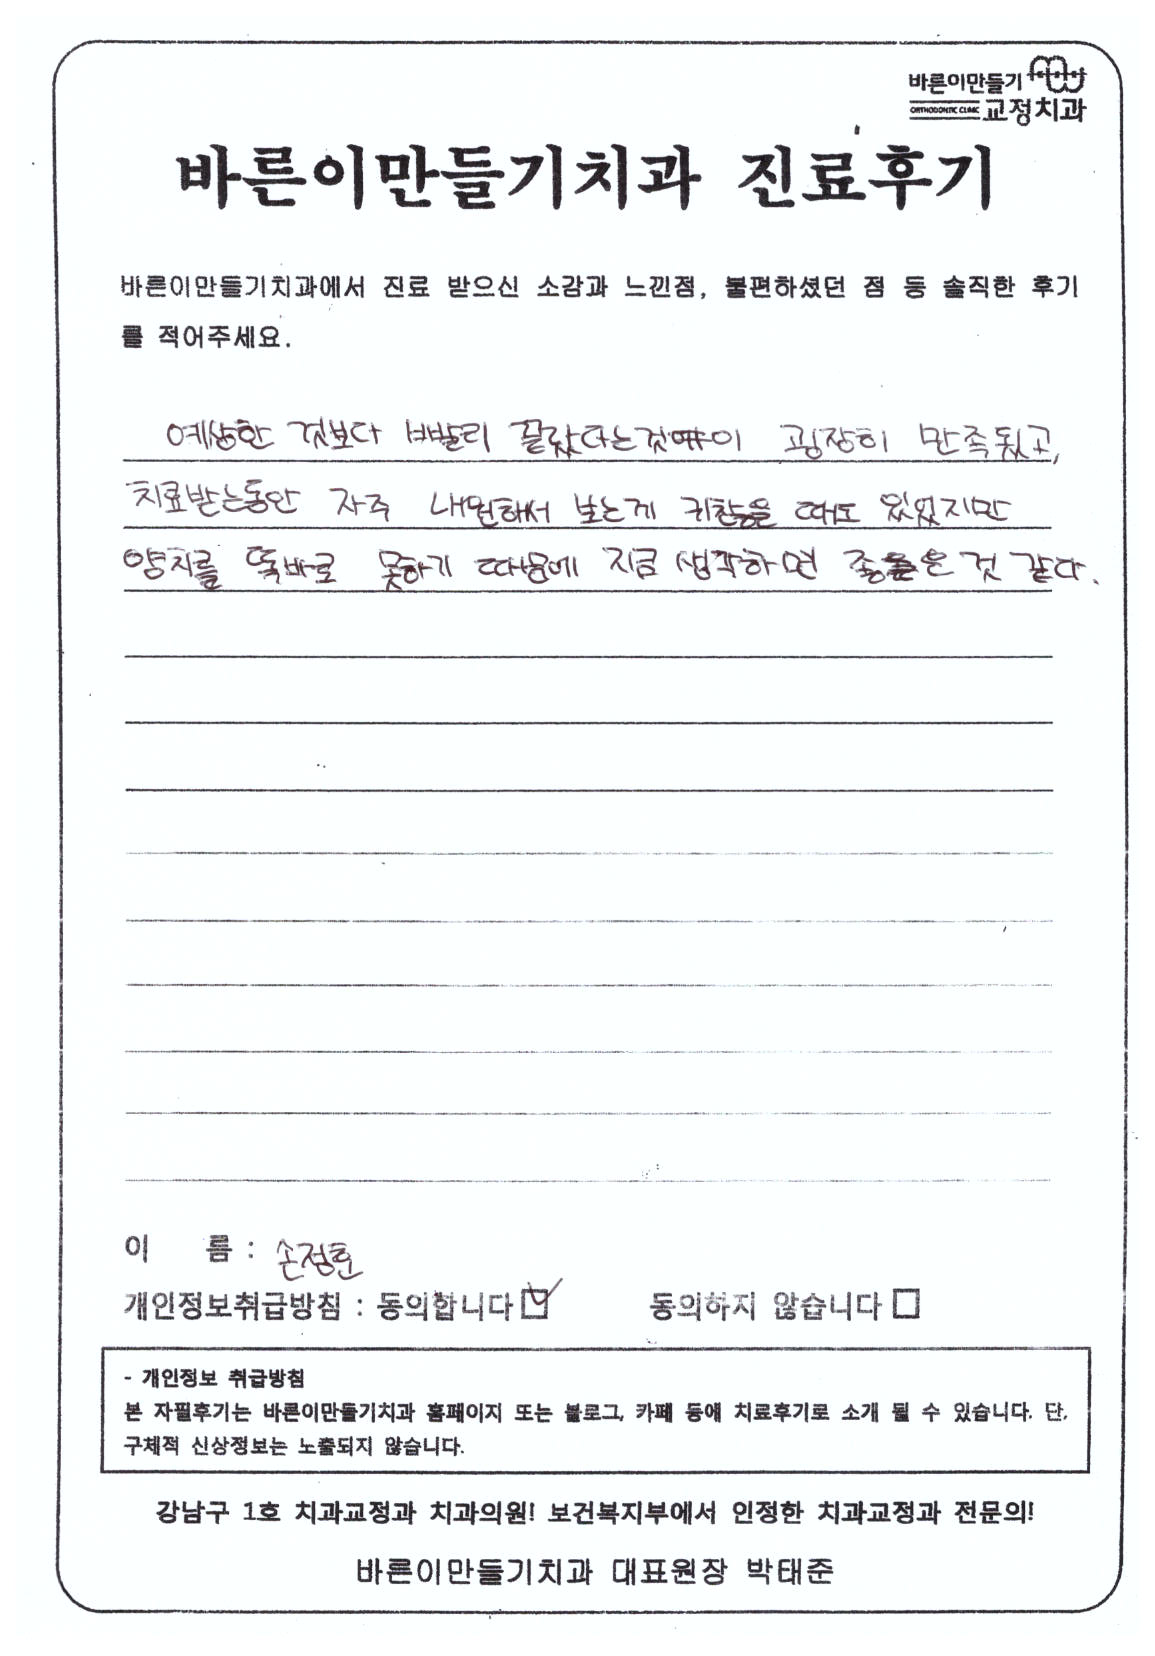 바른이만들기
ORTHODONTIC CLINIC 교정치과
바른이만들기치과 진료후기
바른이만들기치과에서 진료 받으신 소감과 느낀점, 불편하셨던 점 등 솔직한 후기
를 적어주세요.
예상한 것보다 빨리 끝났다는것이 굉장히 만족됬고,
치료받는동안 자주 내원해서 보는게 귀찮을 때도 있었지만
양치를 똑바로 못하기 때문에 지금 생각하면 좋은 것 같다.
이 름 : 손정훈
개인정보취급방침 : 동의합니다 동의하지 않습니다
- 개인정보 취급방침
본 자필후기는 바른이만들기치과 홈페이지 또는 블로그, 카페 등에 치료후기로 소개 될 수 있습니다. 단,
구체적 신상정보는 노출되지 않습니다.
강남구 1호 치과교정과 치과의원! 보건복지부에서 인정한 치과교정과 전문의!
바른이만들기치과 대표원장 박태준